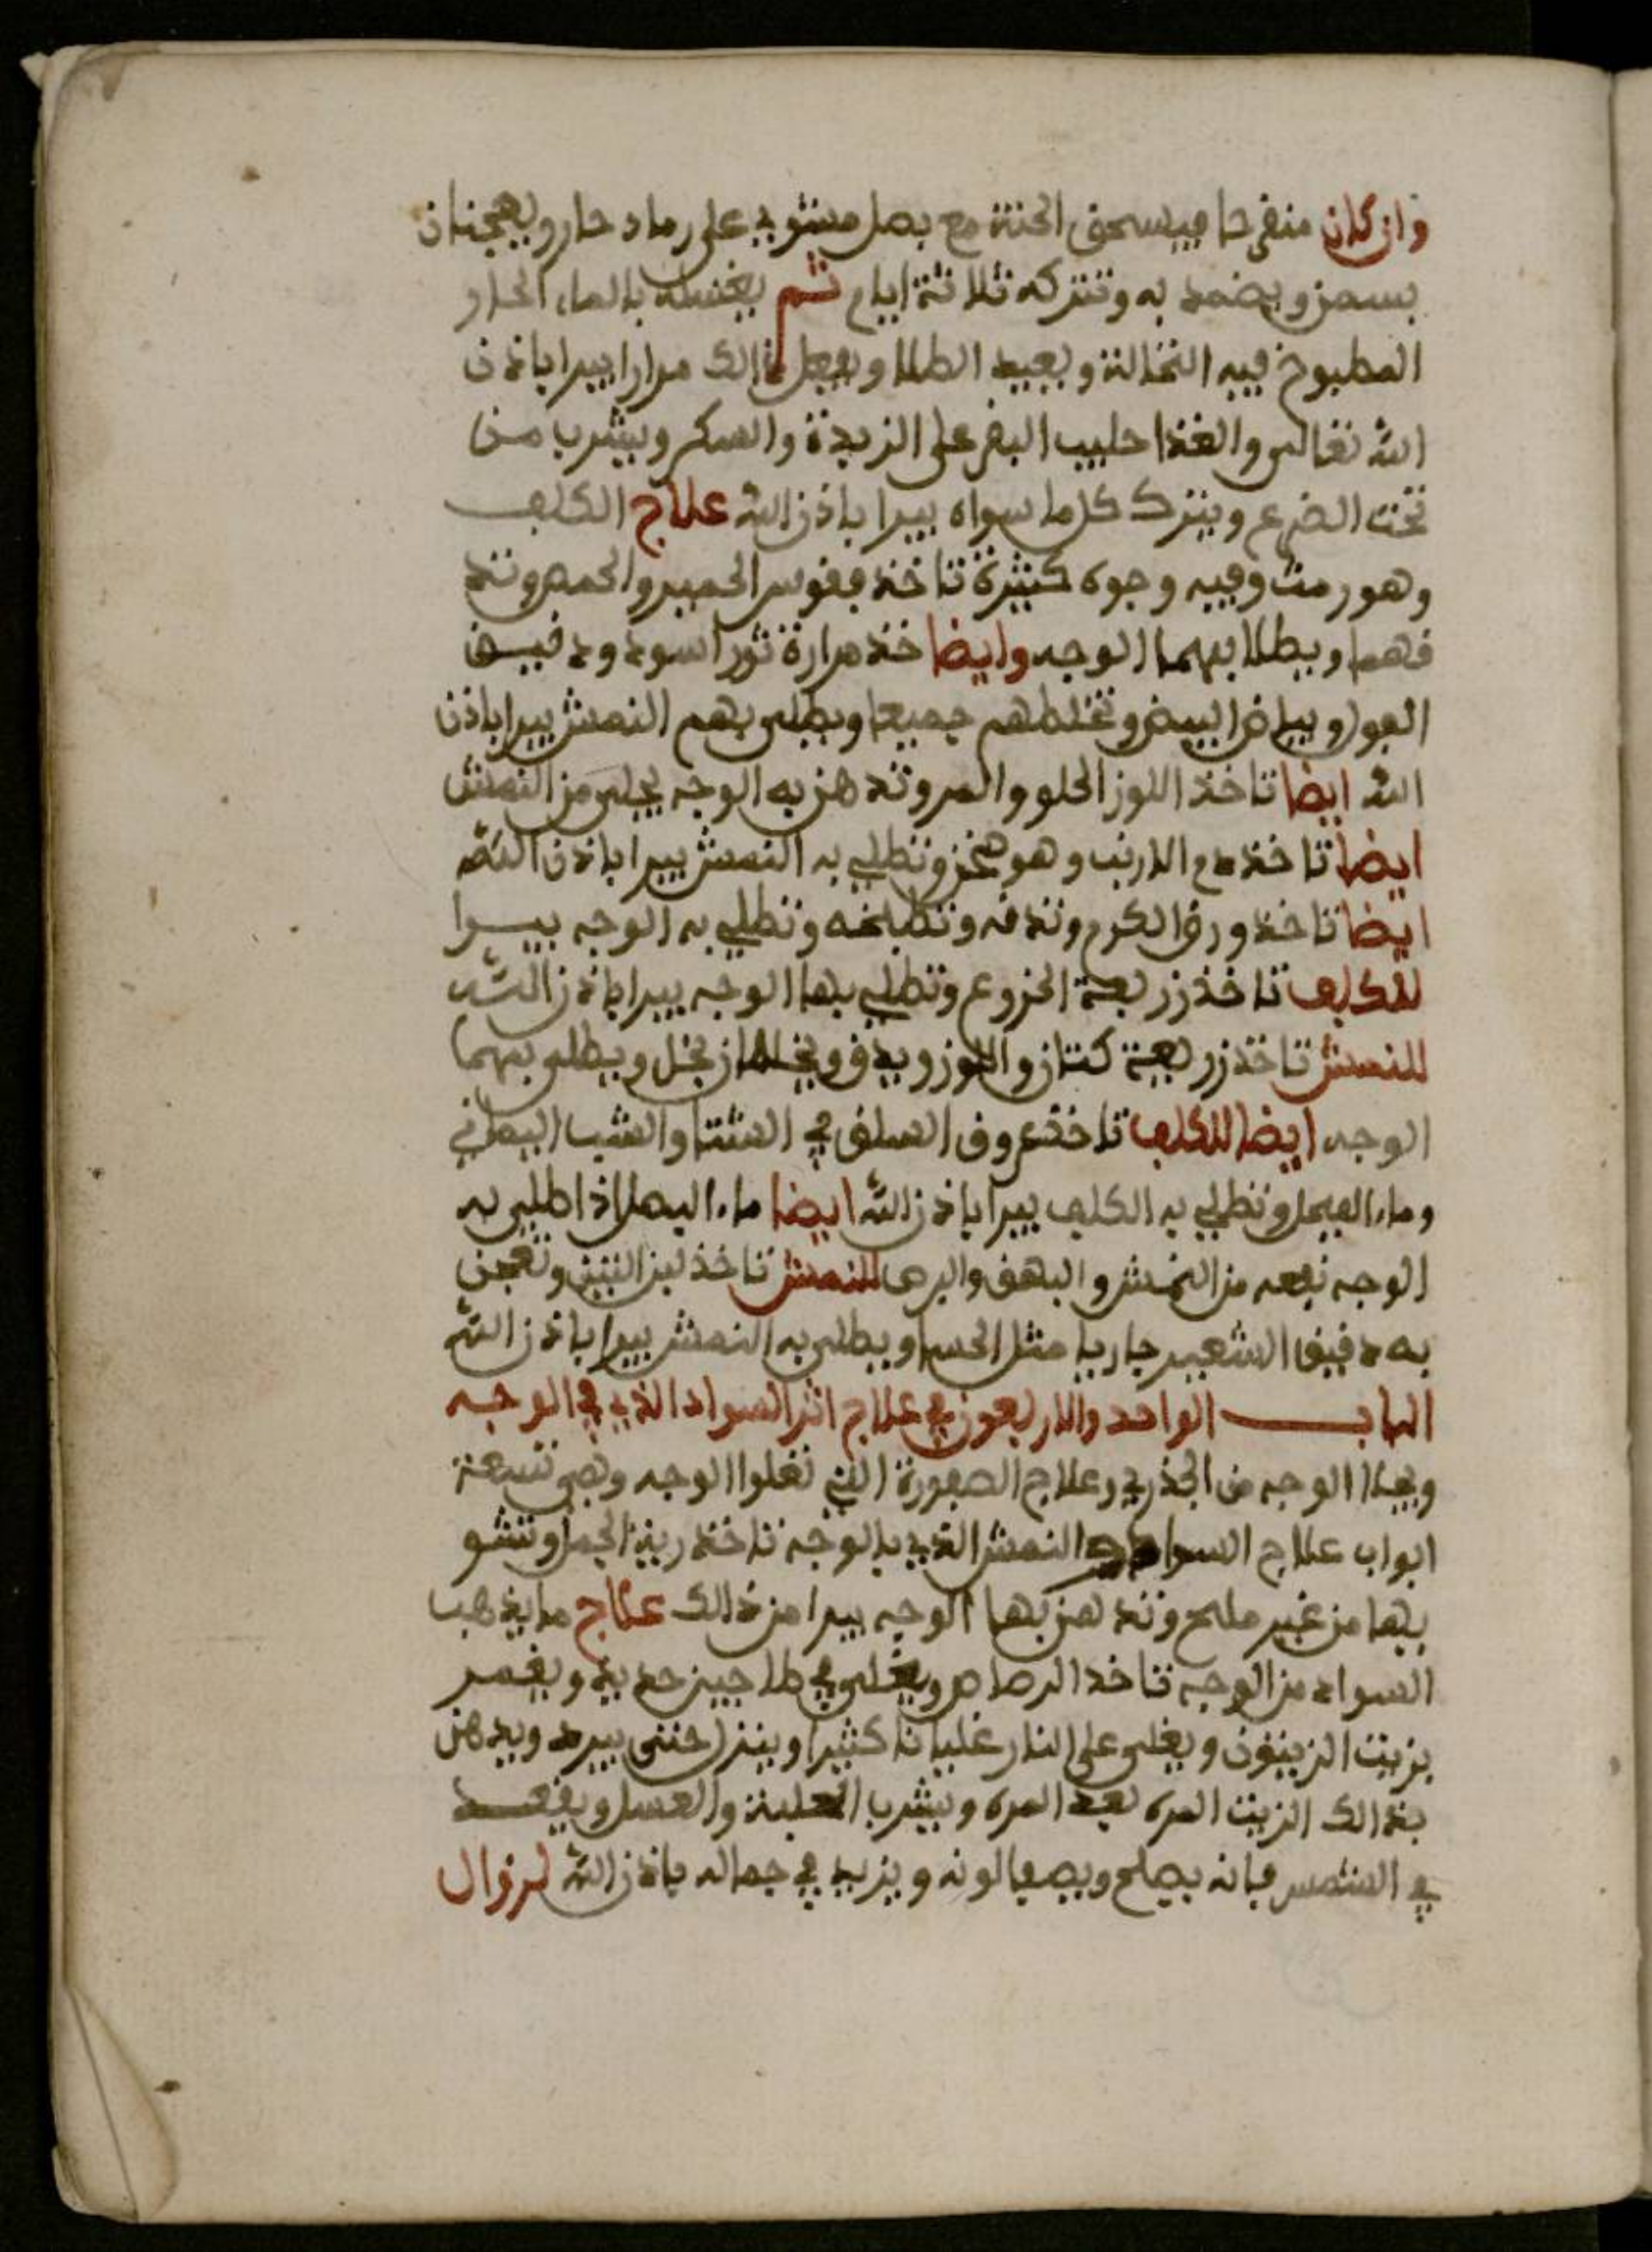 وان كان منقرحا فيسحق الحنة مع بصل مشوي على رماد حار ويعجنان
بسمن ويضمد به وتتركه ثلاثة ايام ثم يغسله بالماء الحار
المطبوخ فيه النخالة ويعيد الطلا ويفعل ذالك مرارا يبرا باذن
الله تعالى والغذا حليب البقر على الزبدة والسكر ويشرب من
تحت الضرع ويترك كل ما سواه يبرا باذن الله علاج الكلف
وهو رمث وفيه وجوه كثيرة تاخذ فقوس الحمير والحمص وتد
فهما ويطلا بهما الوجه وايضا خذ مرارة ثور اسود ودقيق
الفول وبياض البيض وتخلطهم جميعا ويطلى بهم النمش يبرا باذن
الله ايضا تاخذ اللوز الحلو والمر وتدهن به الوجه يجلى من النمش
ايضا تاخذ دم الارنب وهو سخن وتطلي به النمش يبرا باذن الله
ايضا تاخذ ورق الكرم وتدقه وتطبخه وتطلي به الوجه يبرا
للكلف تاخذ زريعة الخروع وتطلي بها الوجه يبرا باذن الله
للنمش تاخذ زريعة كتان واللوز ويدق ويخلطان بخل ويطلى بهما
الوجه ايضا للكلف تاخذ عروق السلق في الشتا والشب اليماني
وماء الفجل وتطلي به الكلف يبرا باذن الله ايضا ماء البصل اذا طلي به
الوجه نفعه من النمش والبهق والبرص للنمش تاخذ لبن التين وتعجن
به دقيق الشعير جاريا مثل الحسا ويطلى به النمش يبرا باذن الله
الباب الواحد والاربعون في علاج اثر السواد الذي في الوجه
وبقاا الوجه من الجذري وعلاج الصفورة التي تعلوا الوجه وهي تسعة
ابواب علاج السواد والنمش الذي بالوجه تاخذ رية الجمل وتشو
يها من غير ملح وتدهن بها الوجه يبرا من ذالك علاج ما يذهب
السواد من الوجه تاخذ الرصاص ويغلى في طاجين حديد ويغمر
بزيت الزيتون ويغلى على النار غليانا كثيرا وينزل حتى يبرد ويدهن
بذالك الزيت المره بعد المره ويشرب الحلبة والعسل ويقعد
في الشمس فانه يصلح ويصفا لونه ويزيد في جماله باذن الله لزوال